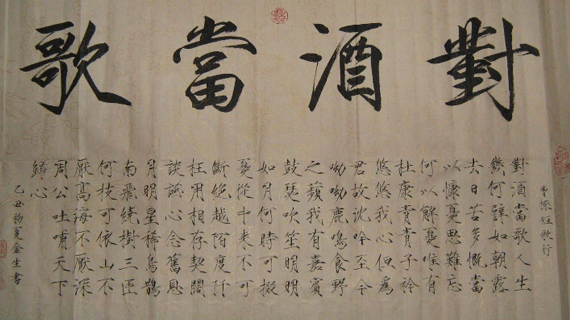 對酒當歌
曹操短歌行
對酒當歌人生
幾何譬如朝露
去日苦多慨當
以慷憂思難忘
何以解憂惟有
杜康青青子衿
悠悠我心但為
君故沈吟至今
呦呦鹿鳴食野
之蘋我有嘉賓
鼓瑟吹笙明明
如月何時可掇
憂從中來不可
斷絕越陌度阡
枉用相存契闊
談讌心念舊恩
月明星稀烏鵲
南飛繞樹三匝
何枝可依山不
厭高海不厭深
周公吐哺天下
歸心
乙丑初夏金生書